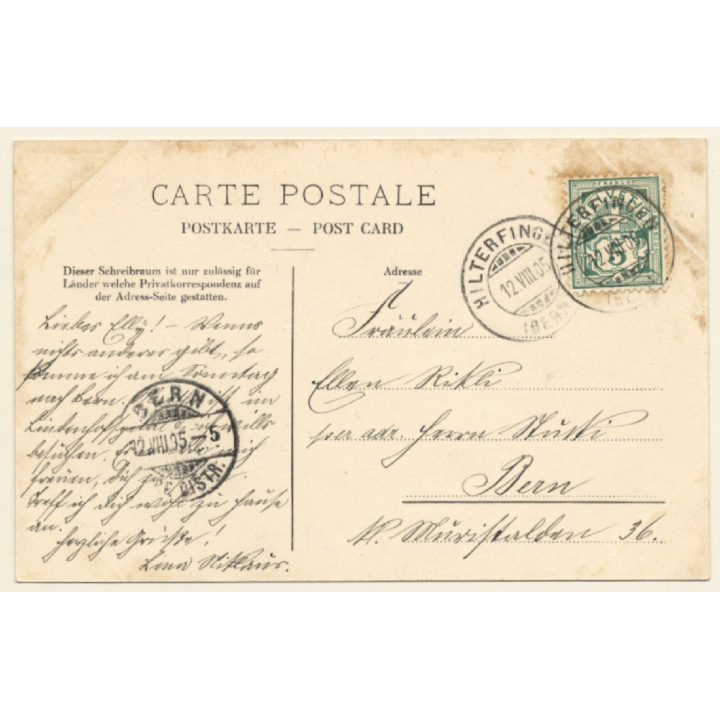 CARTE POSTALE
POSTKARTE — POST CARD
Dieser Schreibraum ist nur zulässig für
Länder welche Privatkorrespondenz auf
der Adress-Seite gestatten.
Liebes Elly! – Wenns
nichts anderes gibt, so
komme ich am Sonntag
nach Bern.
im
Lindenhofspital
besuchen.
freuen, Dich
treff ich Dich wohl zu Hause
an.
herzliche Grüsse!
Lina Niklaus.
Adresse
Fräulein
Ellen Rikli
per adr. Herrn Stucki
Bern
Muristalden 36.
HILTERFINGEN
12.VIII.05
(BERN)
HILTERFINGEN
12.VIII.05
(BERN)
FRANCO
5
BERN
12.VIII.05.–5
DISTR.